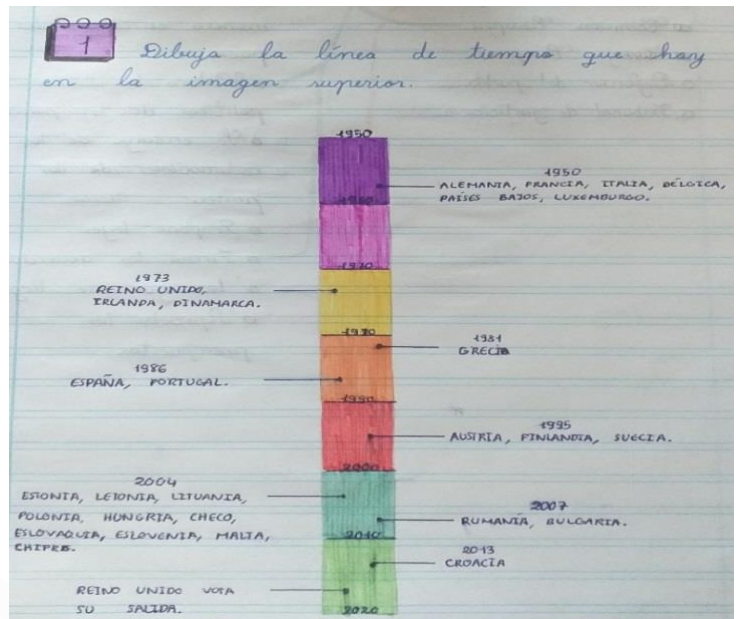 1 Dibuja la línea de tiempo que hay
en la imagen superior.
1950
1950
ALEMANIA, FRANCIA, ITALIA, BÉLGICA,
PAÍSES BAJOS, LUXEMBURGO.
1960
1970
1973
REINO UNIDO,
IRLANDA, DINAMARCA.
1980
1981
GRECIA
1986
ESPAÑA, PORTUGAL.
1990
1995
AUSTRIA, FINLANDIA, SUECIA.
2000
2004
ESTONIA, LETONIA, LITUANIA,
POLONIA, HUNGRIA, CHECO,
ESLOVAQUIA, ESLOVENIA, MALTA,
CHIPRE.
2007
RUMANÍA, BULGARIA.
2010
2013
CROACIA
REINO UNIDO VOTA
SU SALIDA.
2020